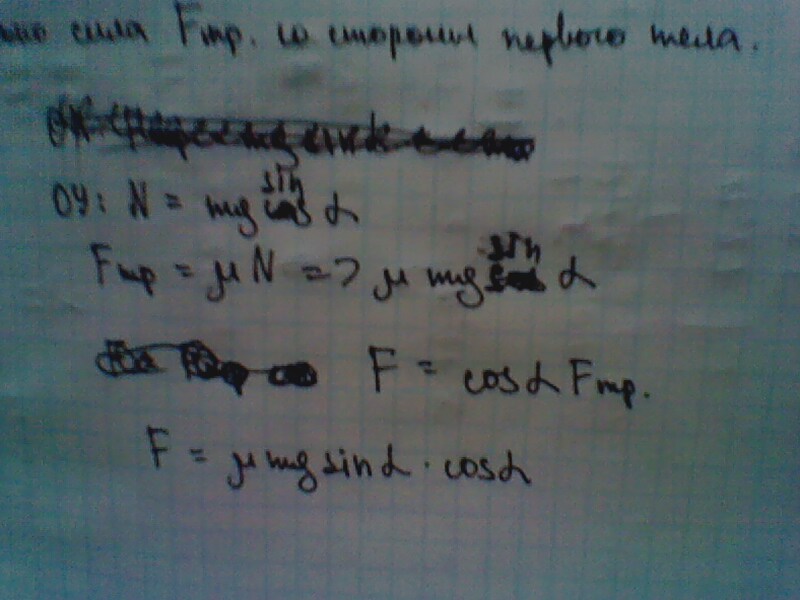 сила Fтр. со стороны первого тела.
OY: N = mg sin α
Fтр = μN => μ mg sin α
F = cosα Fтр.
F = μmg sinα · cosα